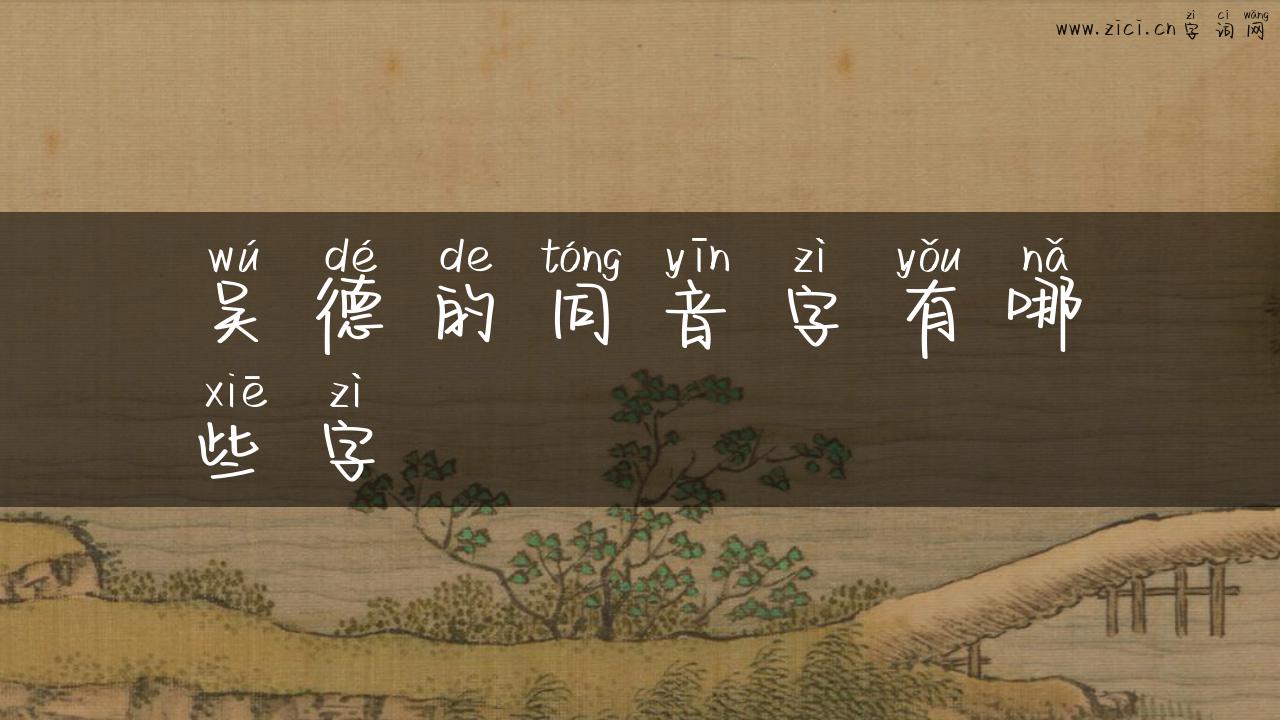 zì cí wǎng
www.zici.cn 字 词 网
wú dé de tóng yīn zì yǒu nǎ
吴 德 的 同 音 字 有 哪
xiē zì
些 字